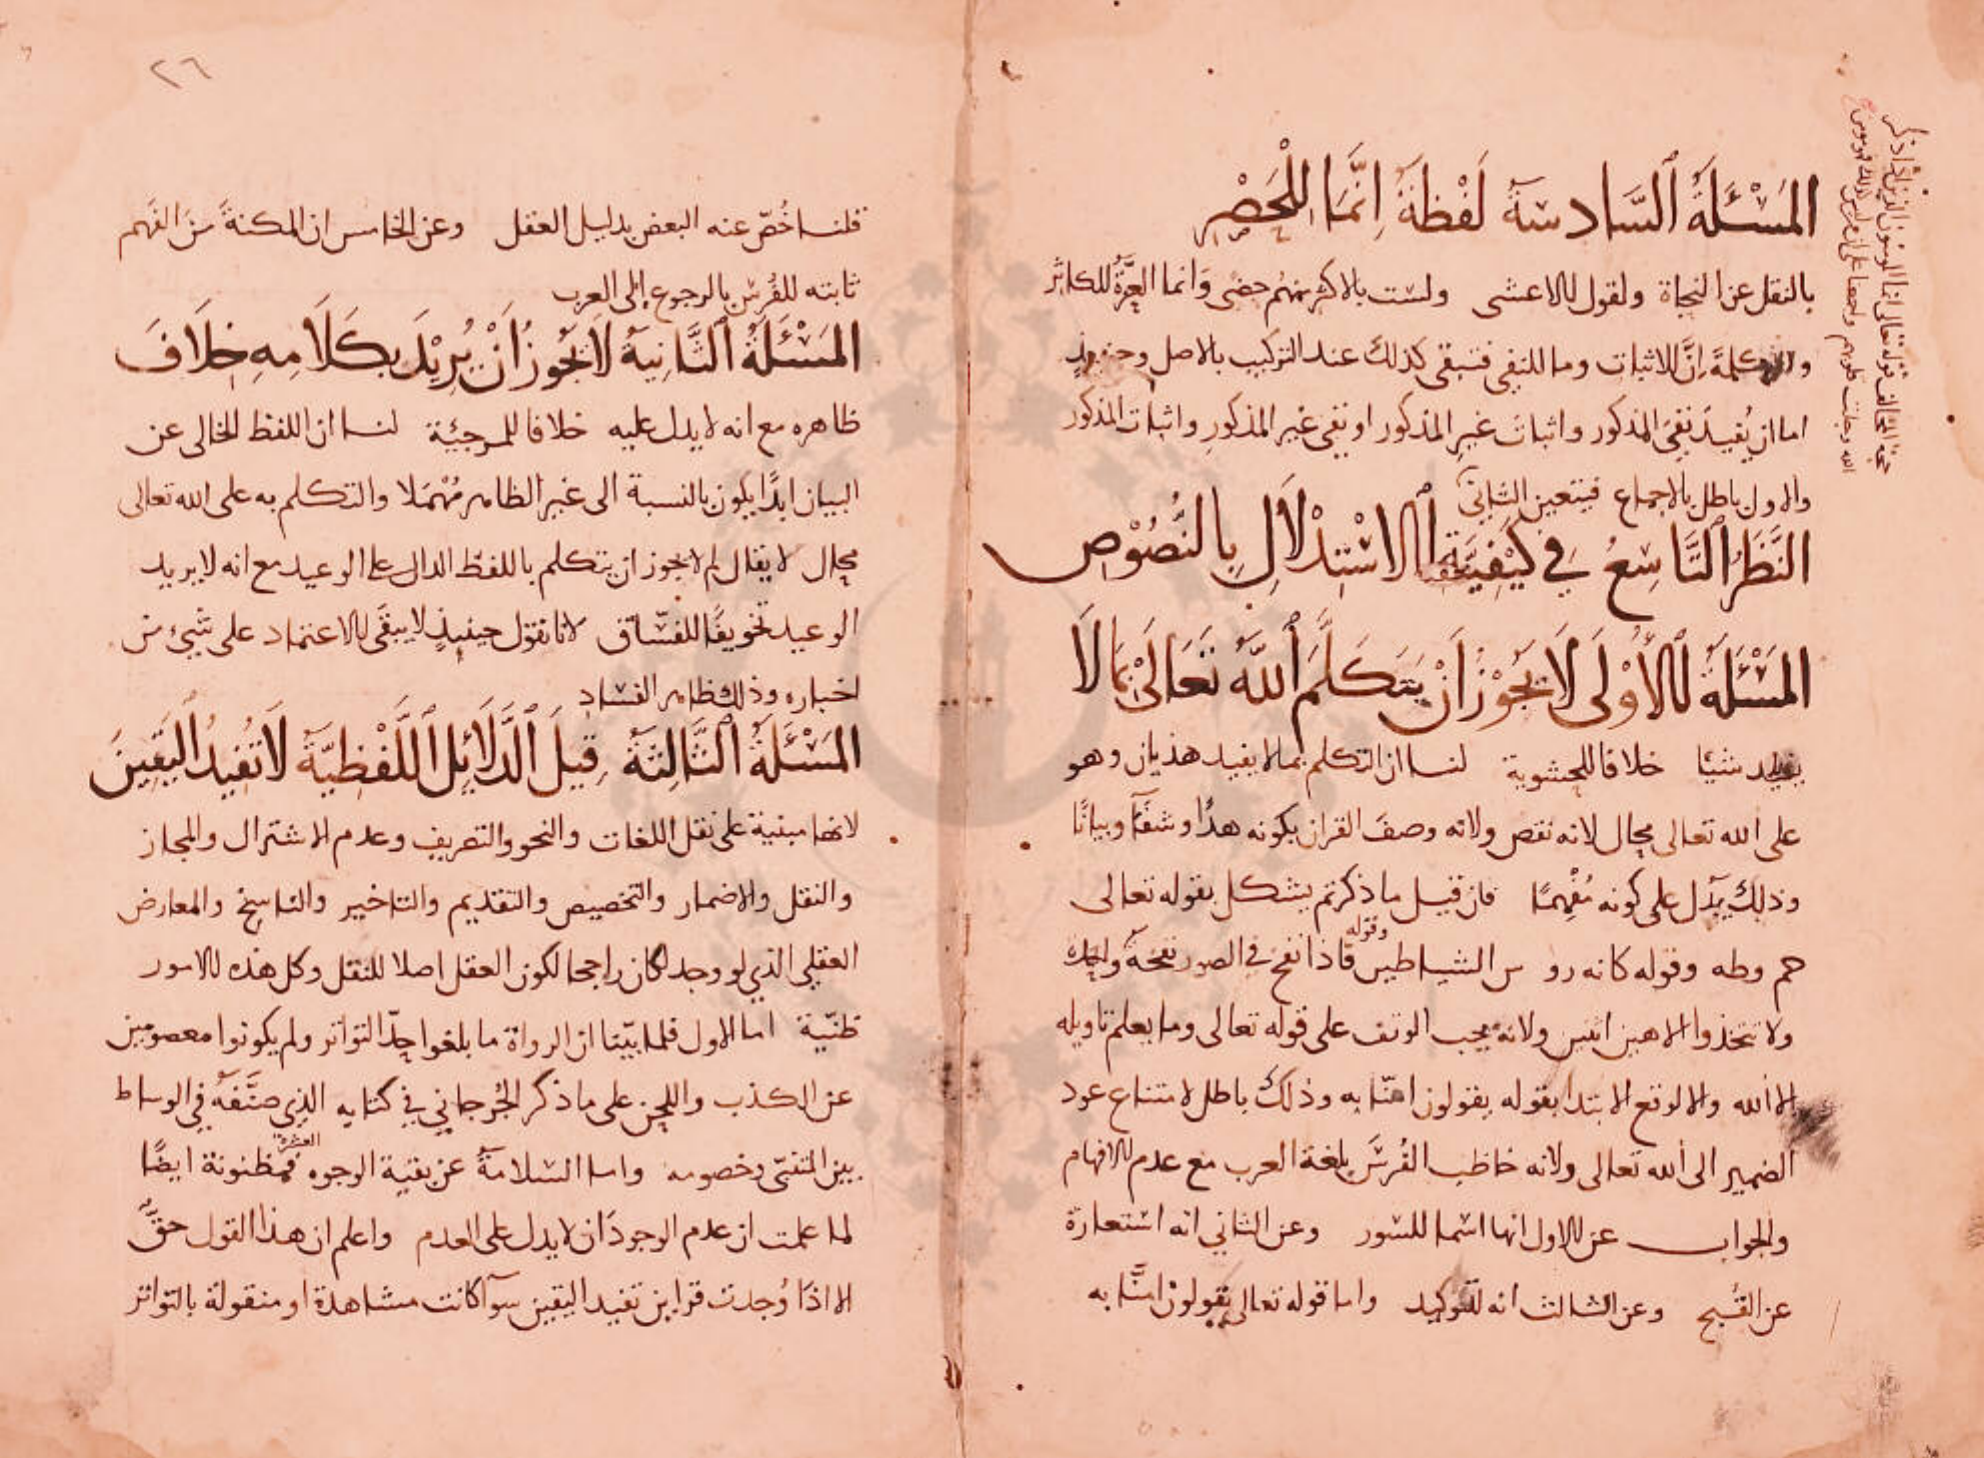 المَسْئَلَةُ ٱلسَّادسَةُ لَفْظَةُ اِنَّمَا لِلْحَصْرِ
بالنقل عن النحاة ولقول الاعشى ولست بالاكثر منهم حصًى وَانما العِزَّةُ للكاثر
ولان كلمةَ اِنَّ للاثبات وما للنفي فتبقى كذلك عند التركيب بالاصل وحينئذٍ
اما ان يُفيدَ نفيَ المذكور واثباتَ غيرِ المذكور او نفي غيرِ المذكورِ واثباتَ المذكور
والاول باطل بالاجماع فيتعين الثاني
النَّظَرُ ٱلتَّاسِعُ فِي كَيْفِيَّةِ ٱلاسْتِدْلَالِ بِالنُّصُوْصِ
المَسْئَلَةُ الأُوْلَى لَا يَجُوْزُ اَنْ يَتَكَلَّمَ ٱللّٰهُ تَعَالَىْ بِمَا لَا
يفيد شيئا خلافا للحشوية لنا ان التكلم بما لا يفيد هذيان وهو
على الله تعالى محال لانه نقص ولانه وصفَ القران بكونه هدًا وشفآءً وبيانًا
وذلك يدّل على كونه مُفْهِمًا فان قيل ما ذكرتم يشكل بقوله تعالى
حم وطه وقوله كانه روس الشياطين وقوله فاذا نفخ في الصور نفخةٌ واحِدة
ولا تتخذوا الاهين اثنين ولانه يجب الوقف على قوله تعالى وما يعلم تاويله
الا الله والا لوقع الابتدا بقوله يقولون امنّا به وذلك باطل لامتناع عود
الضمير الى الله تعالى ولانه خاطب الفُرسَ بلغة العرب مع عدم الافهام
والجواب عن الاول انها اسما للسور وعن الثاني انه استعارة
عن القُبح وعن الثالث انه للتوكيد واما قوله تعالى يقولون امنَّا به
حجة المخالف قوله تعالى انما المومنون الذين اذا ذكر
الله وجلت قلوبهم واجمعنا على ان من ليس كذلك فهو مومن
٢٦
قلنا خُصّ عنه البعض بدليل العقل وعن الخامس ان المكنةَ من الفَهم
ثابته للفُرْس بالرجوع الى العرب
المَسْئَلَةُ ٱلثَّانِيَةُ لَا يَجُوزُ اَنْ يُرِيْدَ بكَلَامِهِ خِلَافَ
ظاهره مع انه لا يدل عليه خلافا للمرجيَّة لنا ان اللفظ الخالى عن
البيان ابدًا يكون بالنسبة الى غير الظاهر مُهْمَلا والتكلم به على الله تعالى
محال لا يقال لم لا يجوز ان يتكلم باللفظ الدال على الوعيد مع انه لا يريد
الوعيد تخويفًا للفسّاق لانا نقول حينيذٍ لا يبقَى الاعتماد على شيءٍ من
اخباره وذلك ظاهر الفساد
المَسْئَلَةُ ٱلثَّالِثَةُ قِيلَ ٱلدَّلَائِل ٱللَّفْظِيَّةُ لَا تُفِيدُ اليَقِينَ
لانها مبنية على نقل اللغات والنحو والتصريف وعدم الاشتراك والمجاز
والنقل والاضمار والتخصيص والتقديم والتاخير والناسخ والمعارض
العقلي الذي لو وجد لكان راجحا لكون العقل اصلا للنقل وكل هذه الامور
ظنّيّة اما الاول فلما بيّنّا ان الرواة ما بلغوا حدّ التواتر ولم يكونوا معصومين
عن الكذب واللحن على ما ذكر الجُرجاني في كتابه الذي صنَّفَهُ في الوساطة
بين المتنبّي وخصومه واما السلامةُ عن بقية الوجوه العشرة فمظنونة ايضًا
لما علمت ان عدم الوجودَان لا يدل على العدم واعلم ان هذا القول حقٌّ
الا اذَا وُجدت قراين تفيد اليقين سوآ كانت مشاهدة او منقولة بالتواتر